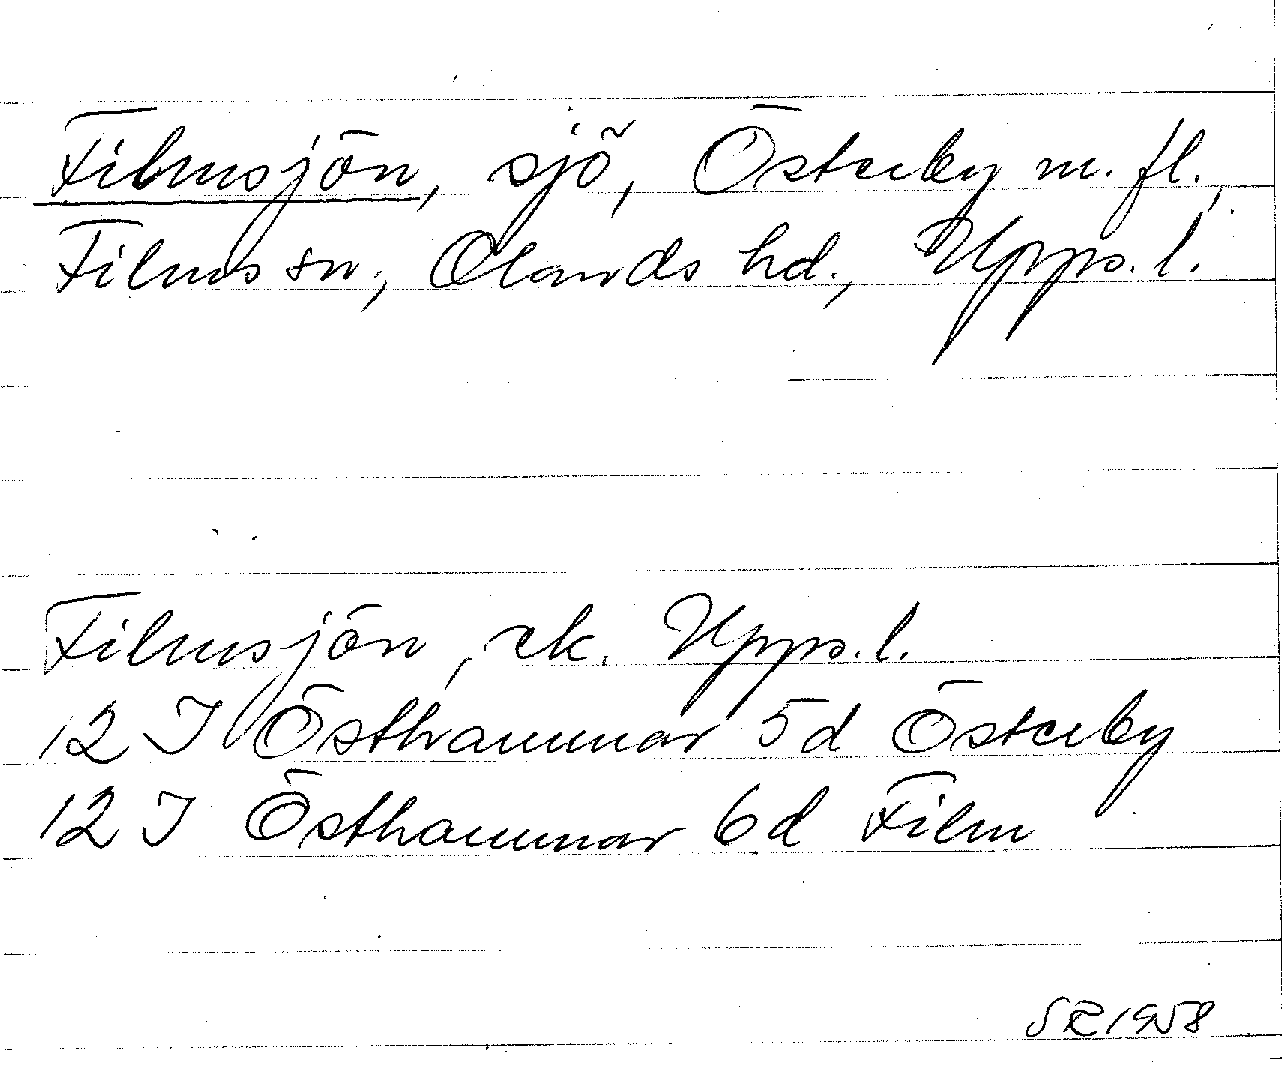 Filmsjön, sjö, Österby m. fl.,
Films sn, Olands hd., Upps. l.
Filmsjön, ek. Upps. l.
12 I Östhammar 5d Österby
12 I Östhammar 6d Film
SR 1958